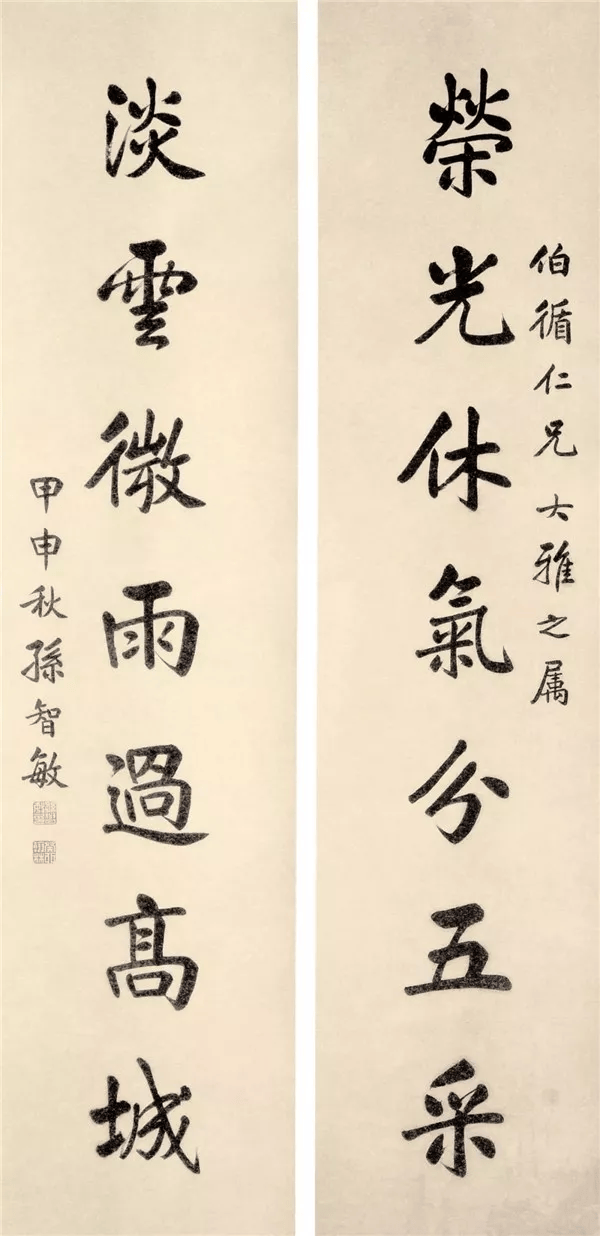 伯循仁兄大雅之属
榮光休氣分五采
淡雲微雨過高城
甲申秋孫智敏